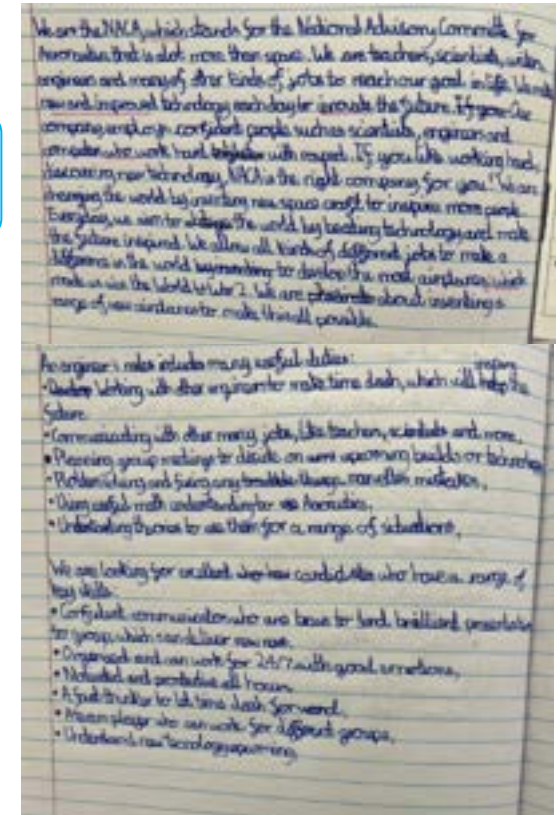 We are the NACA, which stands for the National Advisory Committe for
Aeronautics that is alot more than space. We are teachers, scientists, writers,
engineers and many of other kinds of jobs to reach our goal in life. We make
new and improved technology each day to inovate the future. If you Our
company employs confident people such as scientists, engineers and
who work hard with respect. If you like working hard,
discovering new technology, NACA is the right company for you! We are
changing the world by inventing new space craft to inspire more people.
Everyday, we aim to the world by technology and make
the future inspired. We allow all kinds of different jobs to make a
difference in the world to develop the most airplanes which
made us win the World War 2. We are about inventing a
range of new airplanes to make this all possible.
An engineer's roles includes many useful duties:
inspire
Working with other engineers to make time dash, which will the
future.
• Communicating with other many jobs, like teachers, scientists and more.
• Planning group meetings to decide on upcoming builds or
• and fixing any things, mistakes.
• Using useful math understanding for Aeronautics.
• Understanding theories to use them for a range of situations.
We are looking for excellent candidates who have a range of
key skills:
• Confident communicator who are brave to brilliant
to group, which can deliver
• Organised and can work for 24/7 with good emotions.
• Motivated and all hours.
• A fast thinker to let time dash forward.
• A team player who can work for different groups.
• Understands new upcoming.